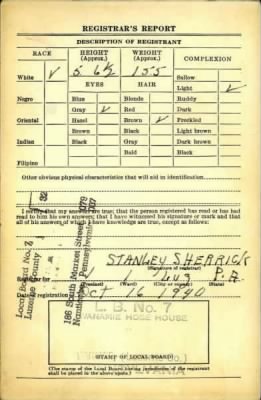 REGISTRAR'S REPORT
DESCRIPTION OF REGISTRANT
RACE HEIGHT (Approx.) WEIGHT (Approx.) COMPLEXION
White ✓ 5 6½ 155 Sallow
EYES HAIR Light ✓
Negro Blue Blonde Ruddy
Gray ✓ Red Dark
Oriental Hazel Brown ✓ Freckled
Brown Black Light brown
Indian Black Gray Dark brown
Bald Black
Filipino
Other obvious physical characteristics that will aid in identification
I certify that my answers are true; that the person registered has read or has had
read to him his own answers; that I have witnessed his signature or mark and that
all of his answers of which I have knowledge are true, except as follows:
Local Board No. 7
Luzerne County
186 South Market Street
Nanticoke, Pennsylvania
STANLEY SHERRICK
(Signature of registrar)
Registrar for 1 1 Luz P.A.
(Precinct) (Ward) (City or county)
Date of registration Oct 16 1940
L. B. No. 7
WANAMIE HOSE HOUSE
(STAMP OF LOCAL BOARD)
(The stamp of the Local Board having jurisdiction of the registrant
shall be placed in the above space.)